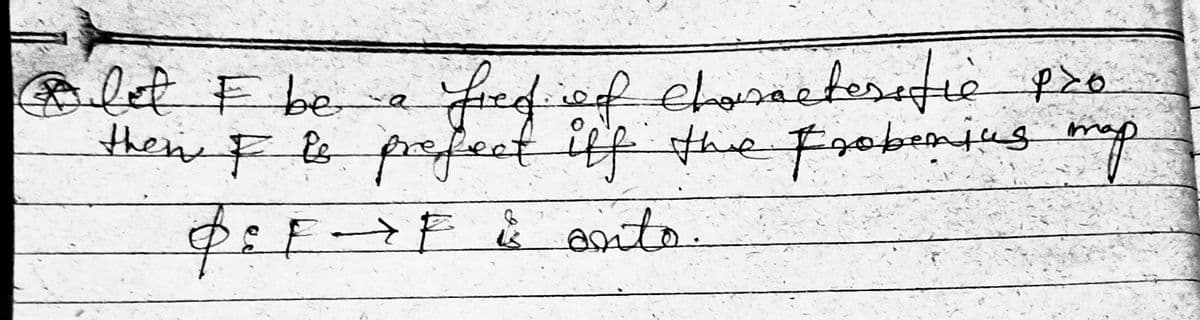 ⊛ let F be a fied of characteristic p>0
then F is prefect iff the Frobenius map
φ: F → F is onto.